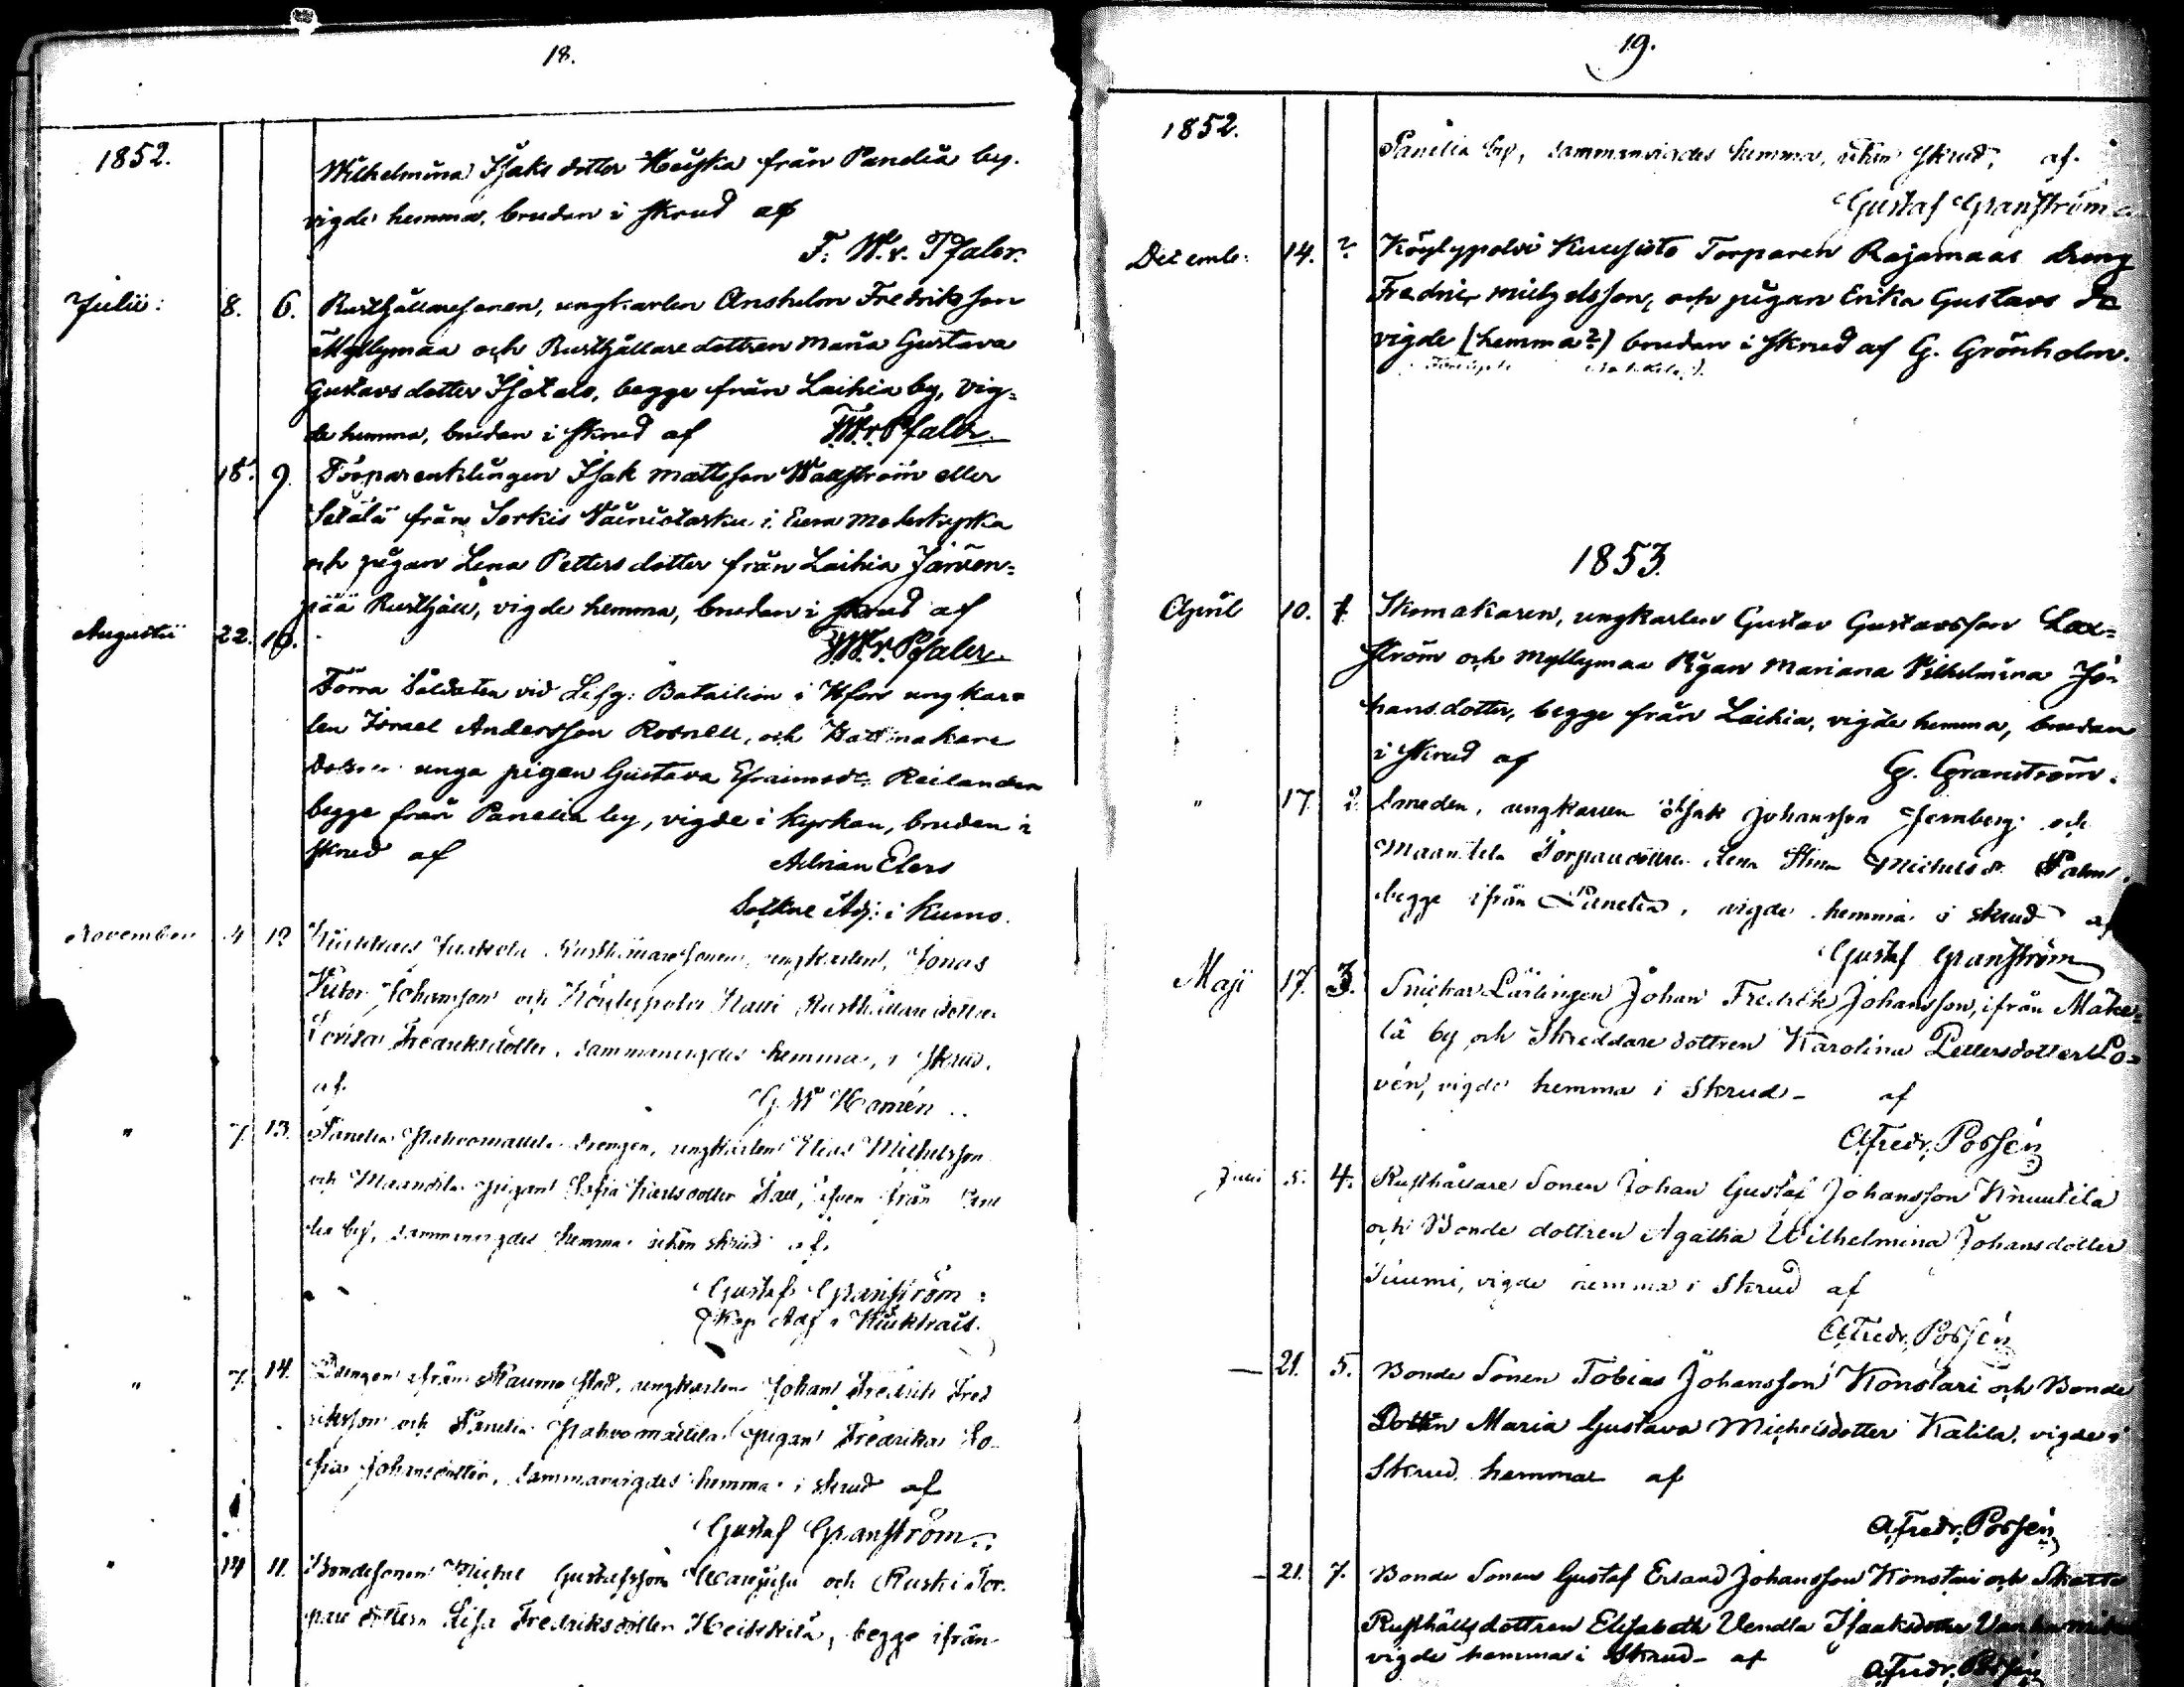 18.
1852.
Wilhelmina Isaks dotter Heiska från Panelia by.
vigde hemma, bruden i skrud af
F. W. v. Pfaler.
Julii: 8. 6. Rusthållaresonen, ungkarlen Anshelm Fredriksson
Myllymaa och Rusthållare dottren Maria Gustava
Gustavs dotter Isotalo, begge från Laihia by, vig=
de hemma, bruden i skrud af F.W.v.Pfaler.
18. 9. Torparenklingen Isak Mattsson Wallström eller
Setälä från Sorkis i Eura Moderkyrka
och pigan Lena Petters dotter från Laihia Järven=
pää Rusthåll, vigde hemma, bruden i skrud af
Augustii 22. 10. F.W.v.Pfaler.
Förra Soldaten vid Lifg: Batailion i Hfors ungkar=
len Israel Andersson Rosnell, och Hattmakare
unga pigan Gustava Efraimsdr Reilander
begge från Panelia by, vigde i kyrkan, bruden i
skrud af Adrian Elers
Adj: i Kumo.
November 4 12 Kiukais Rusthållaresonen, ungkarlen, Jonas
Victor Johansson och Köylypolvi Rusthållare dottren
Lovisa Fredriksdotter, sammanvigdes hemma, i skrud,
af. G. W Homén
" 7. 13. Panelia drengen, ungkarlen Elias Michelsson
och Maantila pigan Sofia Karlsdotter från Pane
lia by, sammanvigdes hemma utan skrud af.
Gustaf Granström
Kap Adj i Kiukkais.
" 7. 14. Drengen ifrån Raumo stad, ungkarlen Johan Fredrich Fred
riksson och Panelia pigan Fredrika So-
fia Johansdotter, sammanvigdes hemma i skrud af
Gustaf Granström.
" 14 11. Bondesonen Michel Gustafsson och Ruski Tor-
pare dottern Lisa Fredriksdotter Heikkilä, begge ifrån
19.
1852.
Panelia by, sammanvigdes hemma, utan skrud, af.
Gustaf Granström
Decemb: 14. ? Köylypolvi Kuusisto Torparen Rajamaas dreng
Fredric Mickelsson, och pigan Erika Gustavs dr
vigde (hemma?) bruden i skrud af G. Grönholm.
1853.
April 10. 1. Skomakaren, ungkarlen Gustav Gustavsson Lax=
ström och Myllymaa Pigan Mariana Vilhelmina Jo=
hansdotter, begge från Laihia, vigde hemma, bruden
i skrud af G. Granström.
" 17. 2. Smeden, ungkarlen Isak Johansson Jernberg och
Maantila Torparedottren Lena Stina Michelsdr. Palm,
begge ifrån Panelia, vigde hemma i skrud af
Gustaf Granström
Maji 17. 3. Snickar Lärlingen Johan Fredrik Johansson, ifrån Mäke=
lä by och Skreddare dottren Karolina Pettersdotter Lo=
vén, vigde hemma i Skrud - af
A.Fredr. Possén
Juni 5. 4. Rusthållare Sonen Johan Gustaf Johansson Knuutila
och Bonde dottren Agatha Wilhelmina Johansdotter
Tuumi, vigde hemma i Skrud af
A.Fredr. Possén
— 21. 5. Bonde Sonen Tobias Johansson Konstari och Bonde
Dottren Maria Gustava Michelsdotter Kalila, vigde i
Skrud hemma af
A.Fredr. Possén
— 21. 7. Bonde Sonen Gustaf Erland Johansson Konstari och Skatte
Rusthålls dottren Elisabeth Vendla Isaaksdotter
vigde hemma i Skrud - af A.Fredr. Possén